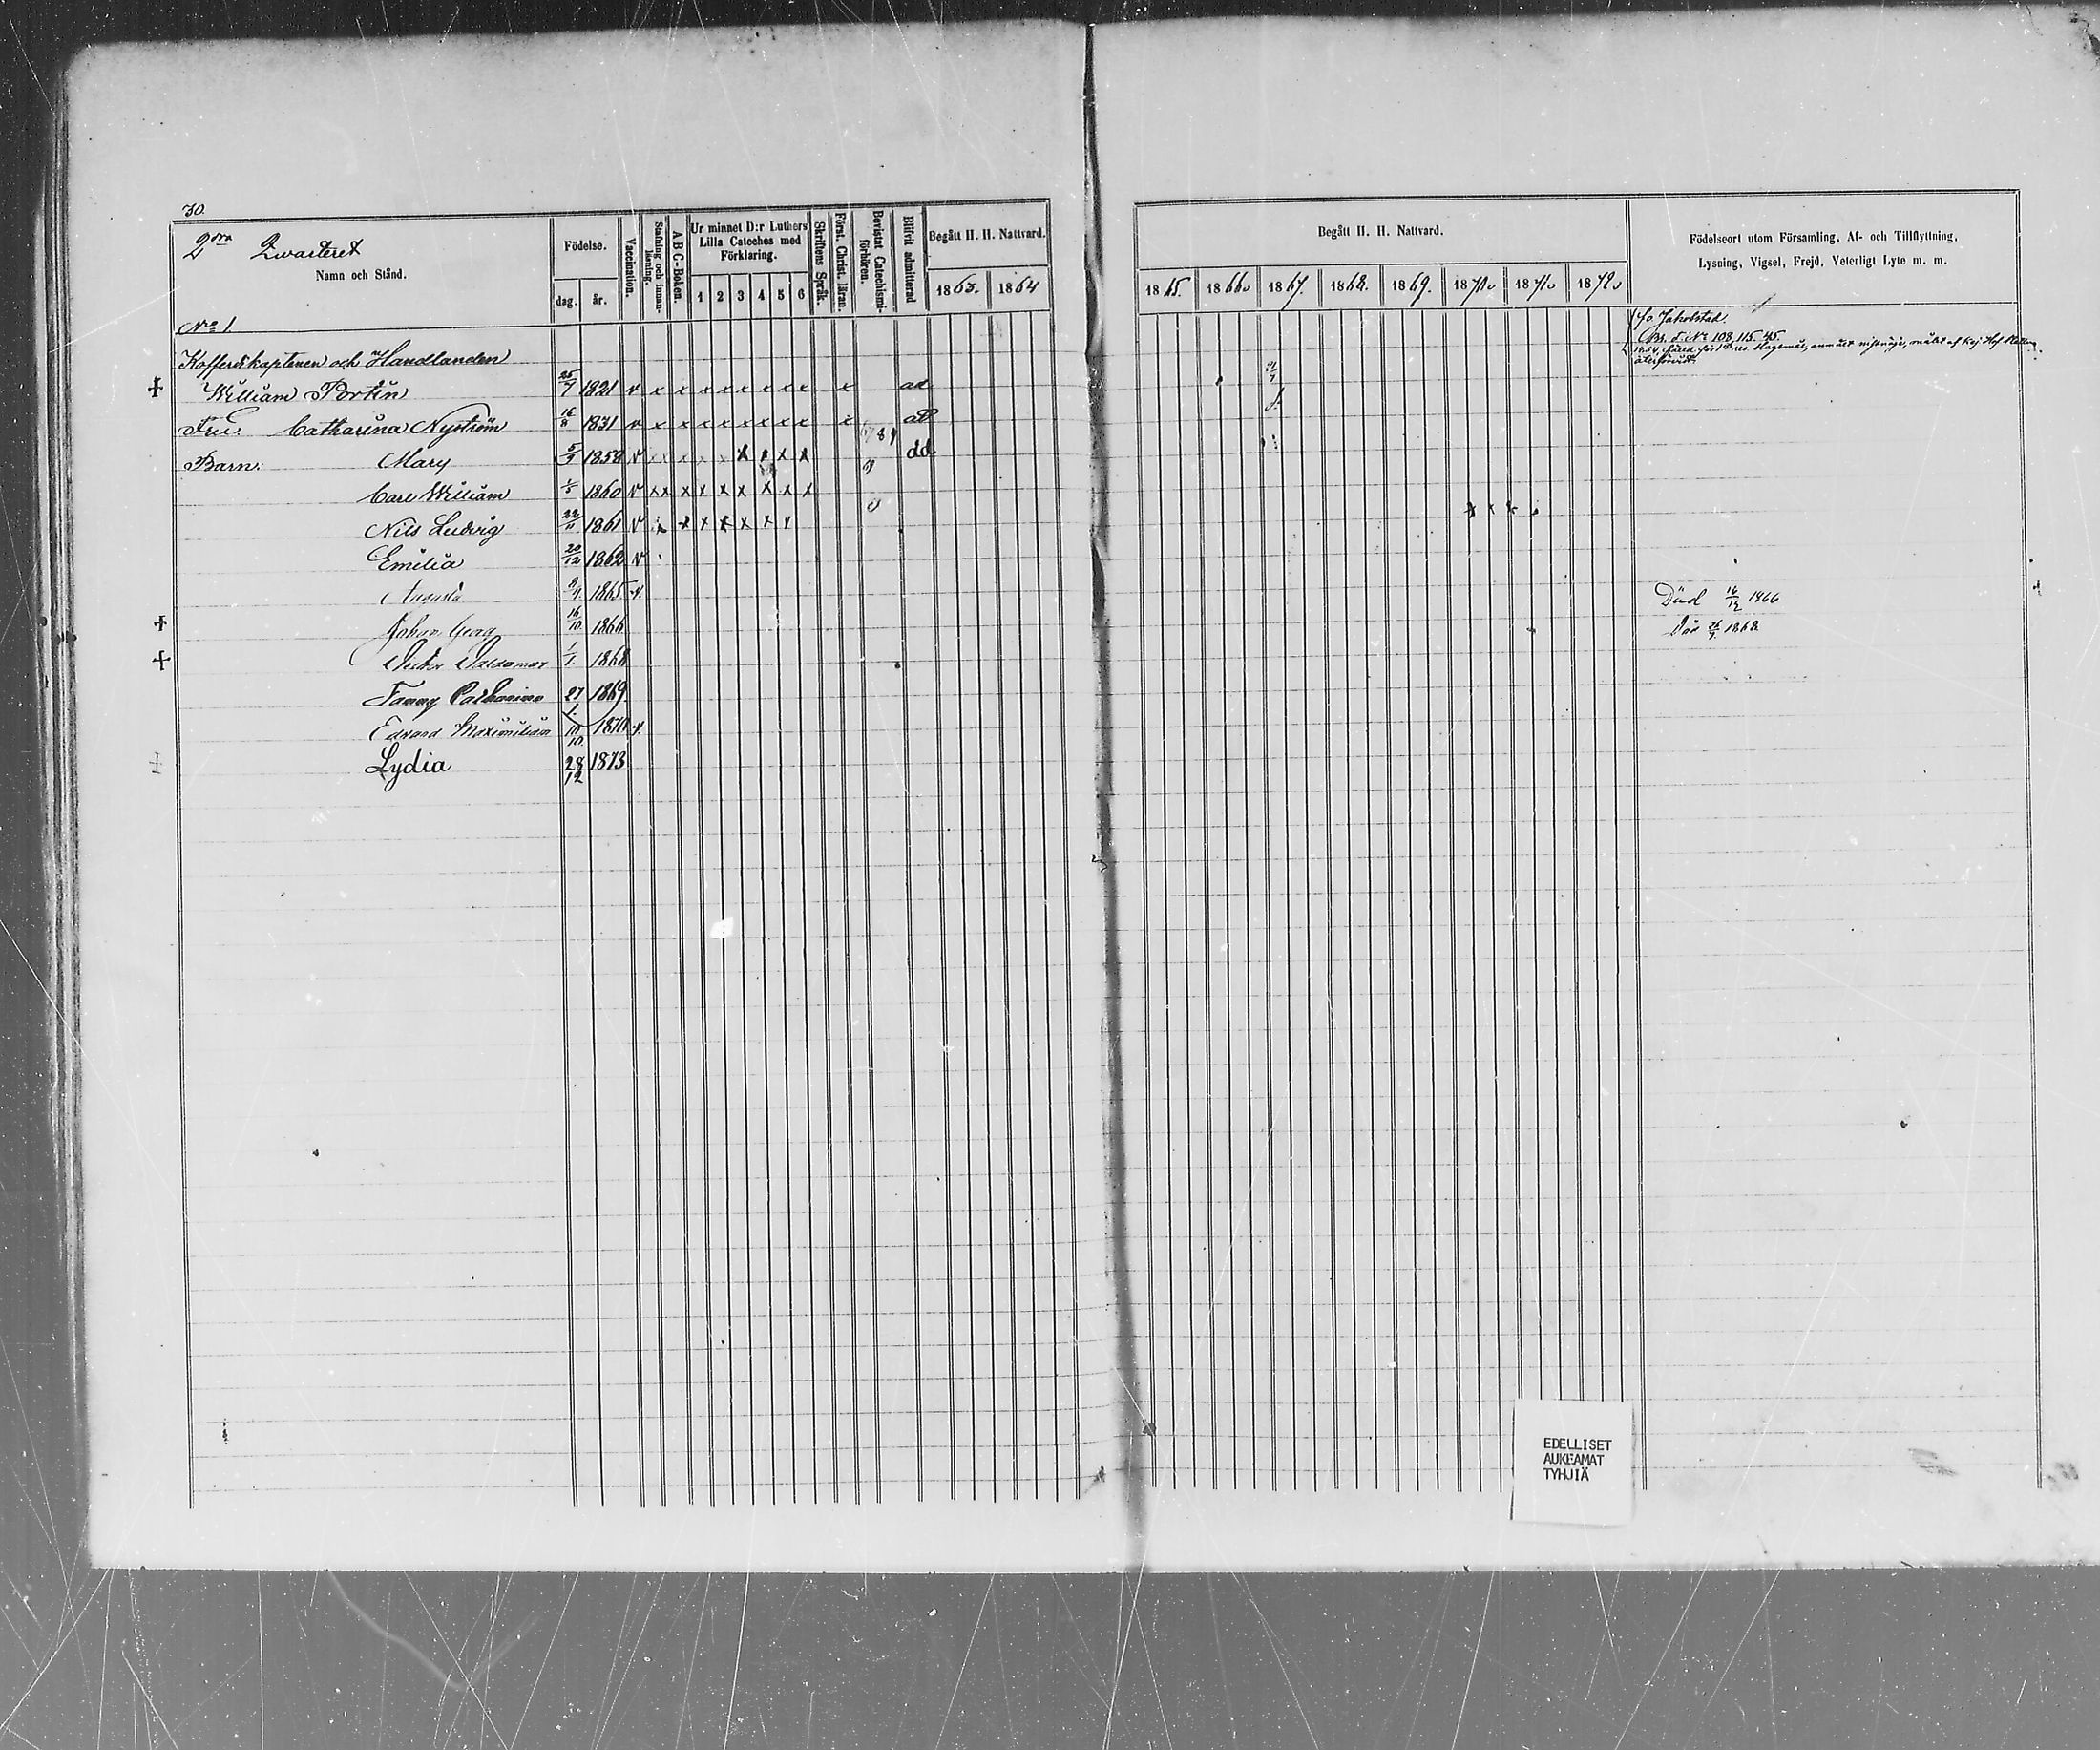 30.
2dra Qvarteret
Namn och Stånd.
Födelse.
dag. år.
Vaccination.
Stafning och innanläsning.
A B C-Boken.
Ur minnet D:r Luthers
Lilla Cateches med
Förklaring.
1 2 3 4 5 6
Skriftens Språk.
Först. Christ. läran.
Bevistat Catechismi-
förhören.
Blifvit admitterad
Begått H. H. Nattvard.
1863. 1864
No 1
Kofferdikaptenen och Handlanden
William Portin 25/7 1821 v x x x x x x x x x ad
Fru: Catharina Nyström 16/8 1831 v x x x x x x x x x ad
Barn: Mary 5/9 1858 v x x x x dd
Carl William 1/5 1860 v x x x x x x x x x
Nils Ludvig 22/11 1861 v x x x x x x x
Emilia 20/12 1862 v
Augusta 1865 v.
Johan Georg 16/10 1866
Victor Valdemar 1/7. 1868
Fanny Catharina 27/1. 1869
Edvard Maximilian 10/10. 1870 v.
Lydia 28/12 1873
Begått H. H. Nattvard.
1865. 1866 1867. 1868. 1869. 1870 1871 1872
Födelseort utom Församling, Af- och Tillflyttning,
Lysning, Vigsel, Frejd, Veterligt Lyte m. m.
fo. Jakobstad.
No 108, 115. 45.
1854
Död 16/12 1866
Död 26/7. 1868
EDELLISET
AUKEAMAT
TYHJIÄ